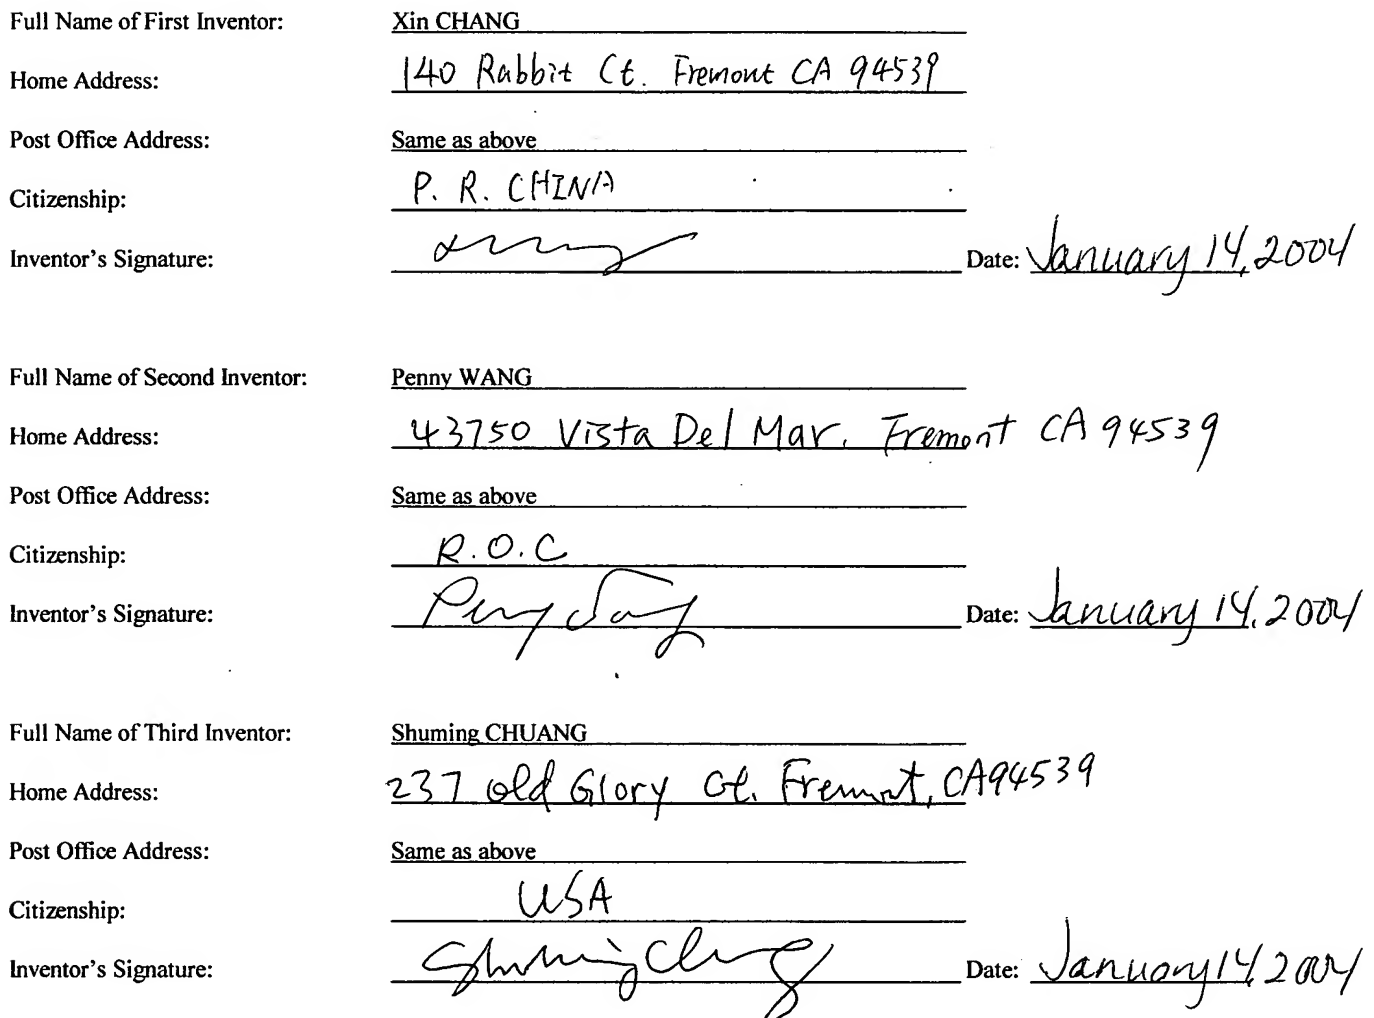 Full Name of First Inventor: Xin CHANG
Home Address: 140 Rabbit Ct. Fremont CA 94539
Post Office Address: Same as above
Citizenship: P. R. CHINA
Inventor's Signature: Date: January 14, 2004
Full Name of Second Inventor: Penny WANG
Home Address: 43750 Vista Del Mar. Fremont CA 94539
Post Office Address: Same as above
Citizenship: R.O.C
Inventor's Signature: Penny Wang Date: January 14, 2004
Full Name of Third Inventor: Shuming CHUANG
Home Address: 237 old Glory Ct. Fremont, CA 94539
Post Office Address: Same as above
Citizenship: USA
Inventor's Signature: Shuming Chuang Date: January 14, 2004